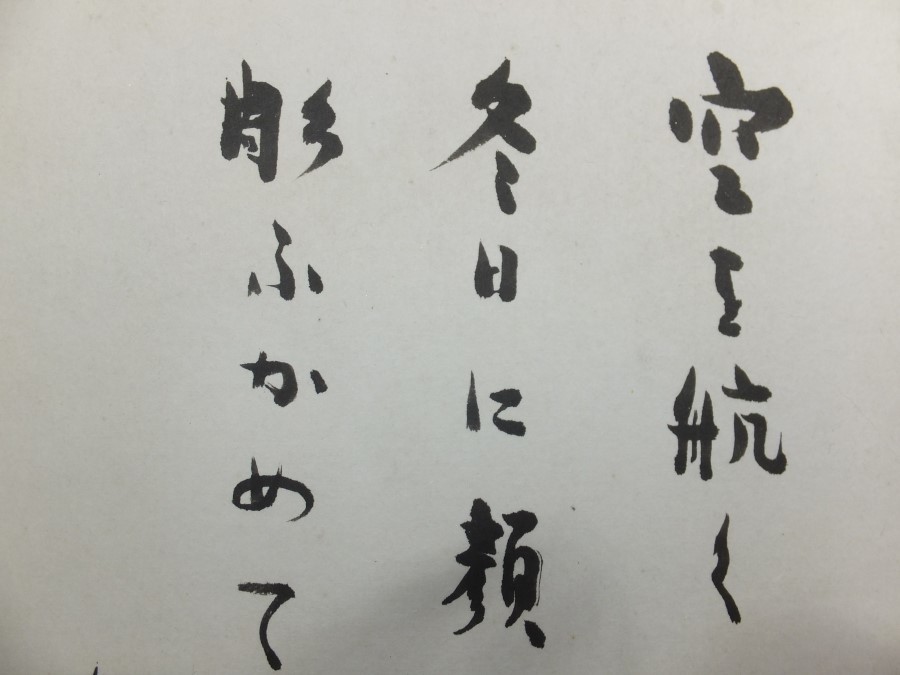 空を航く
冬日に顔
彫ふかめて